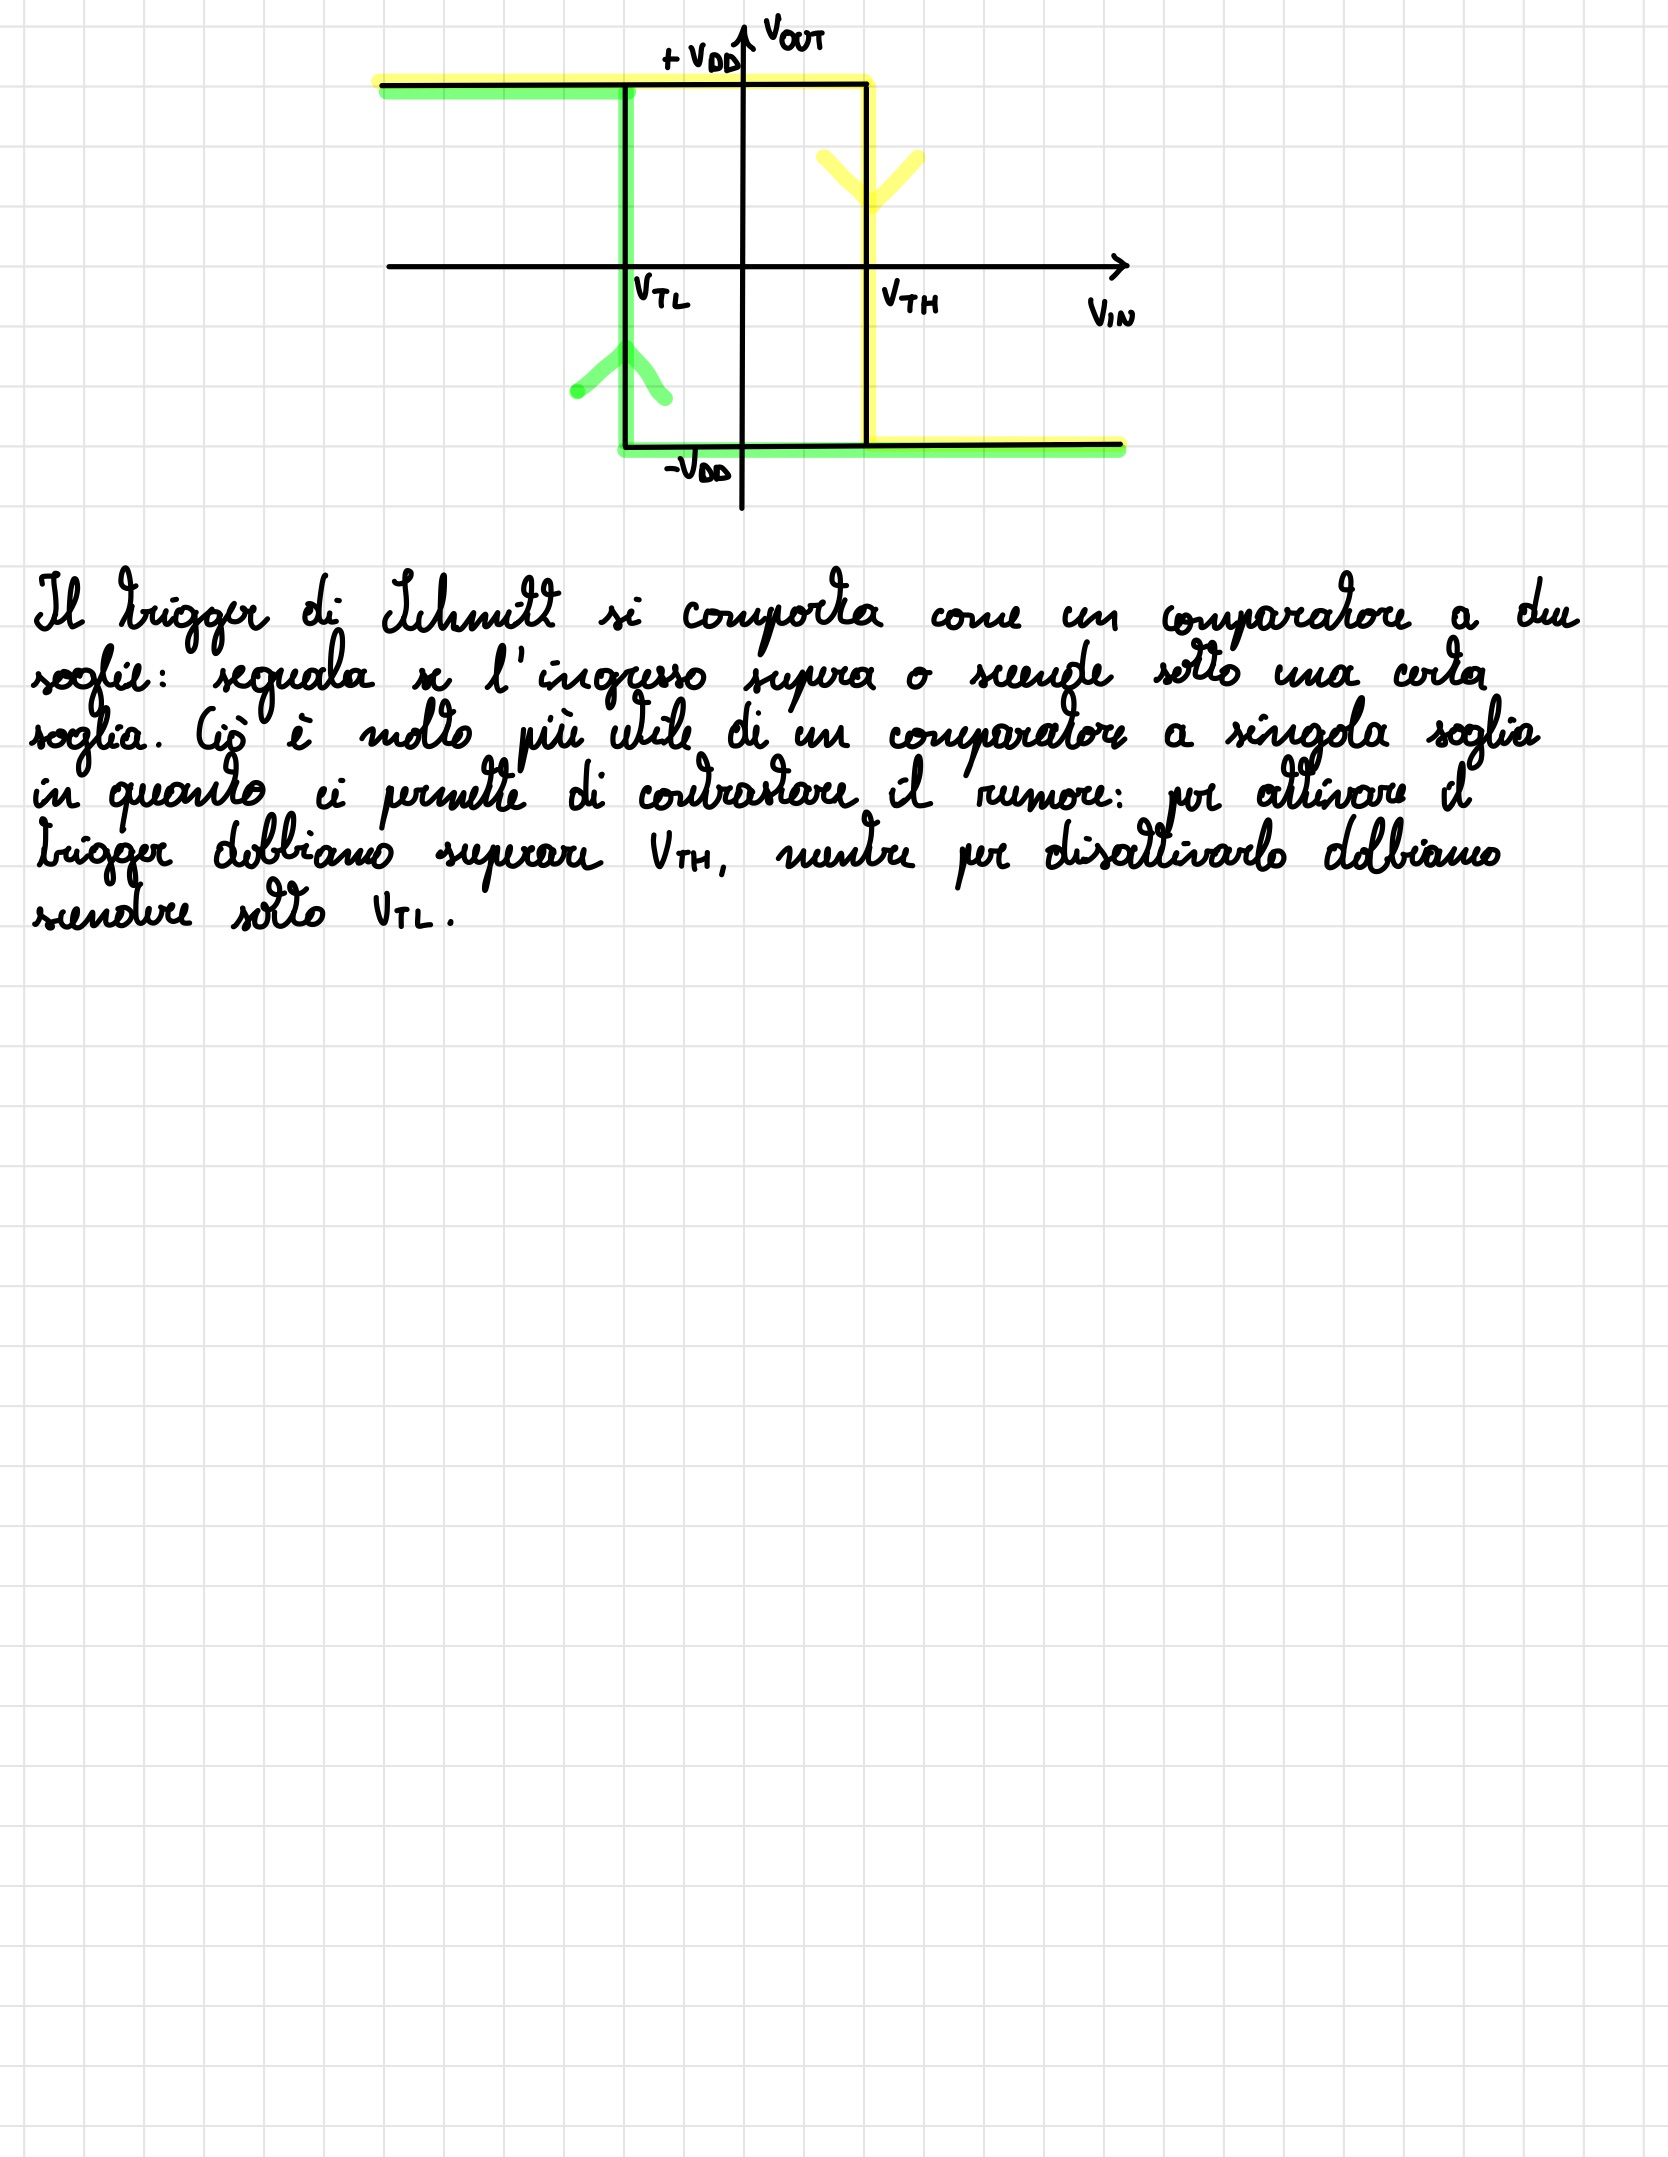 V_OUT
+ V_DD
V_TL
V_TH
V_IN
-V_DD
Il trigger di Schmitt si comporta come un comparatore a due
soglie: segnala se l'ingresso supera o scende sotto una certa
soglia. Ciò è molto più utile di un comparatore a singola soglia
in quanto ci permette di contrastare il rumore: per attivare il
trigger dobbiamo superare V_TH, mentre per disattivarlo dobbiamo
scendere sotto V_TL.